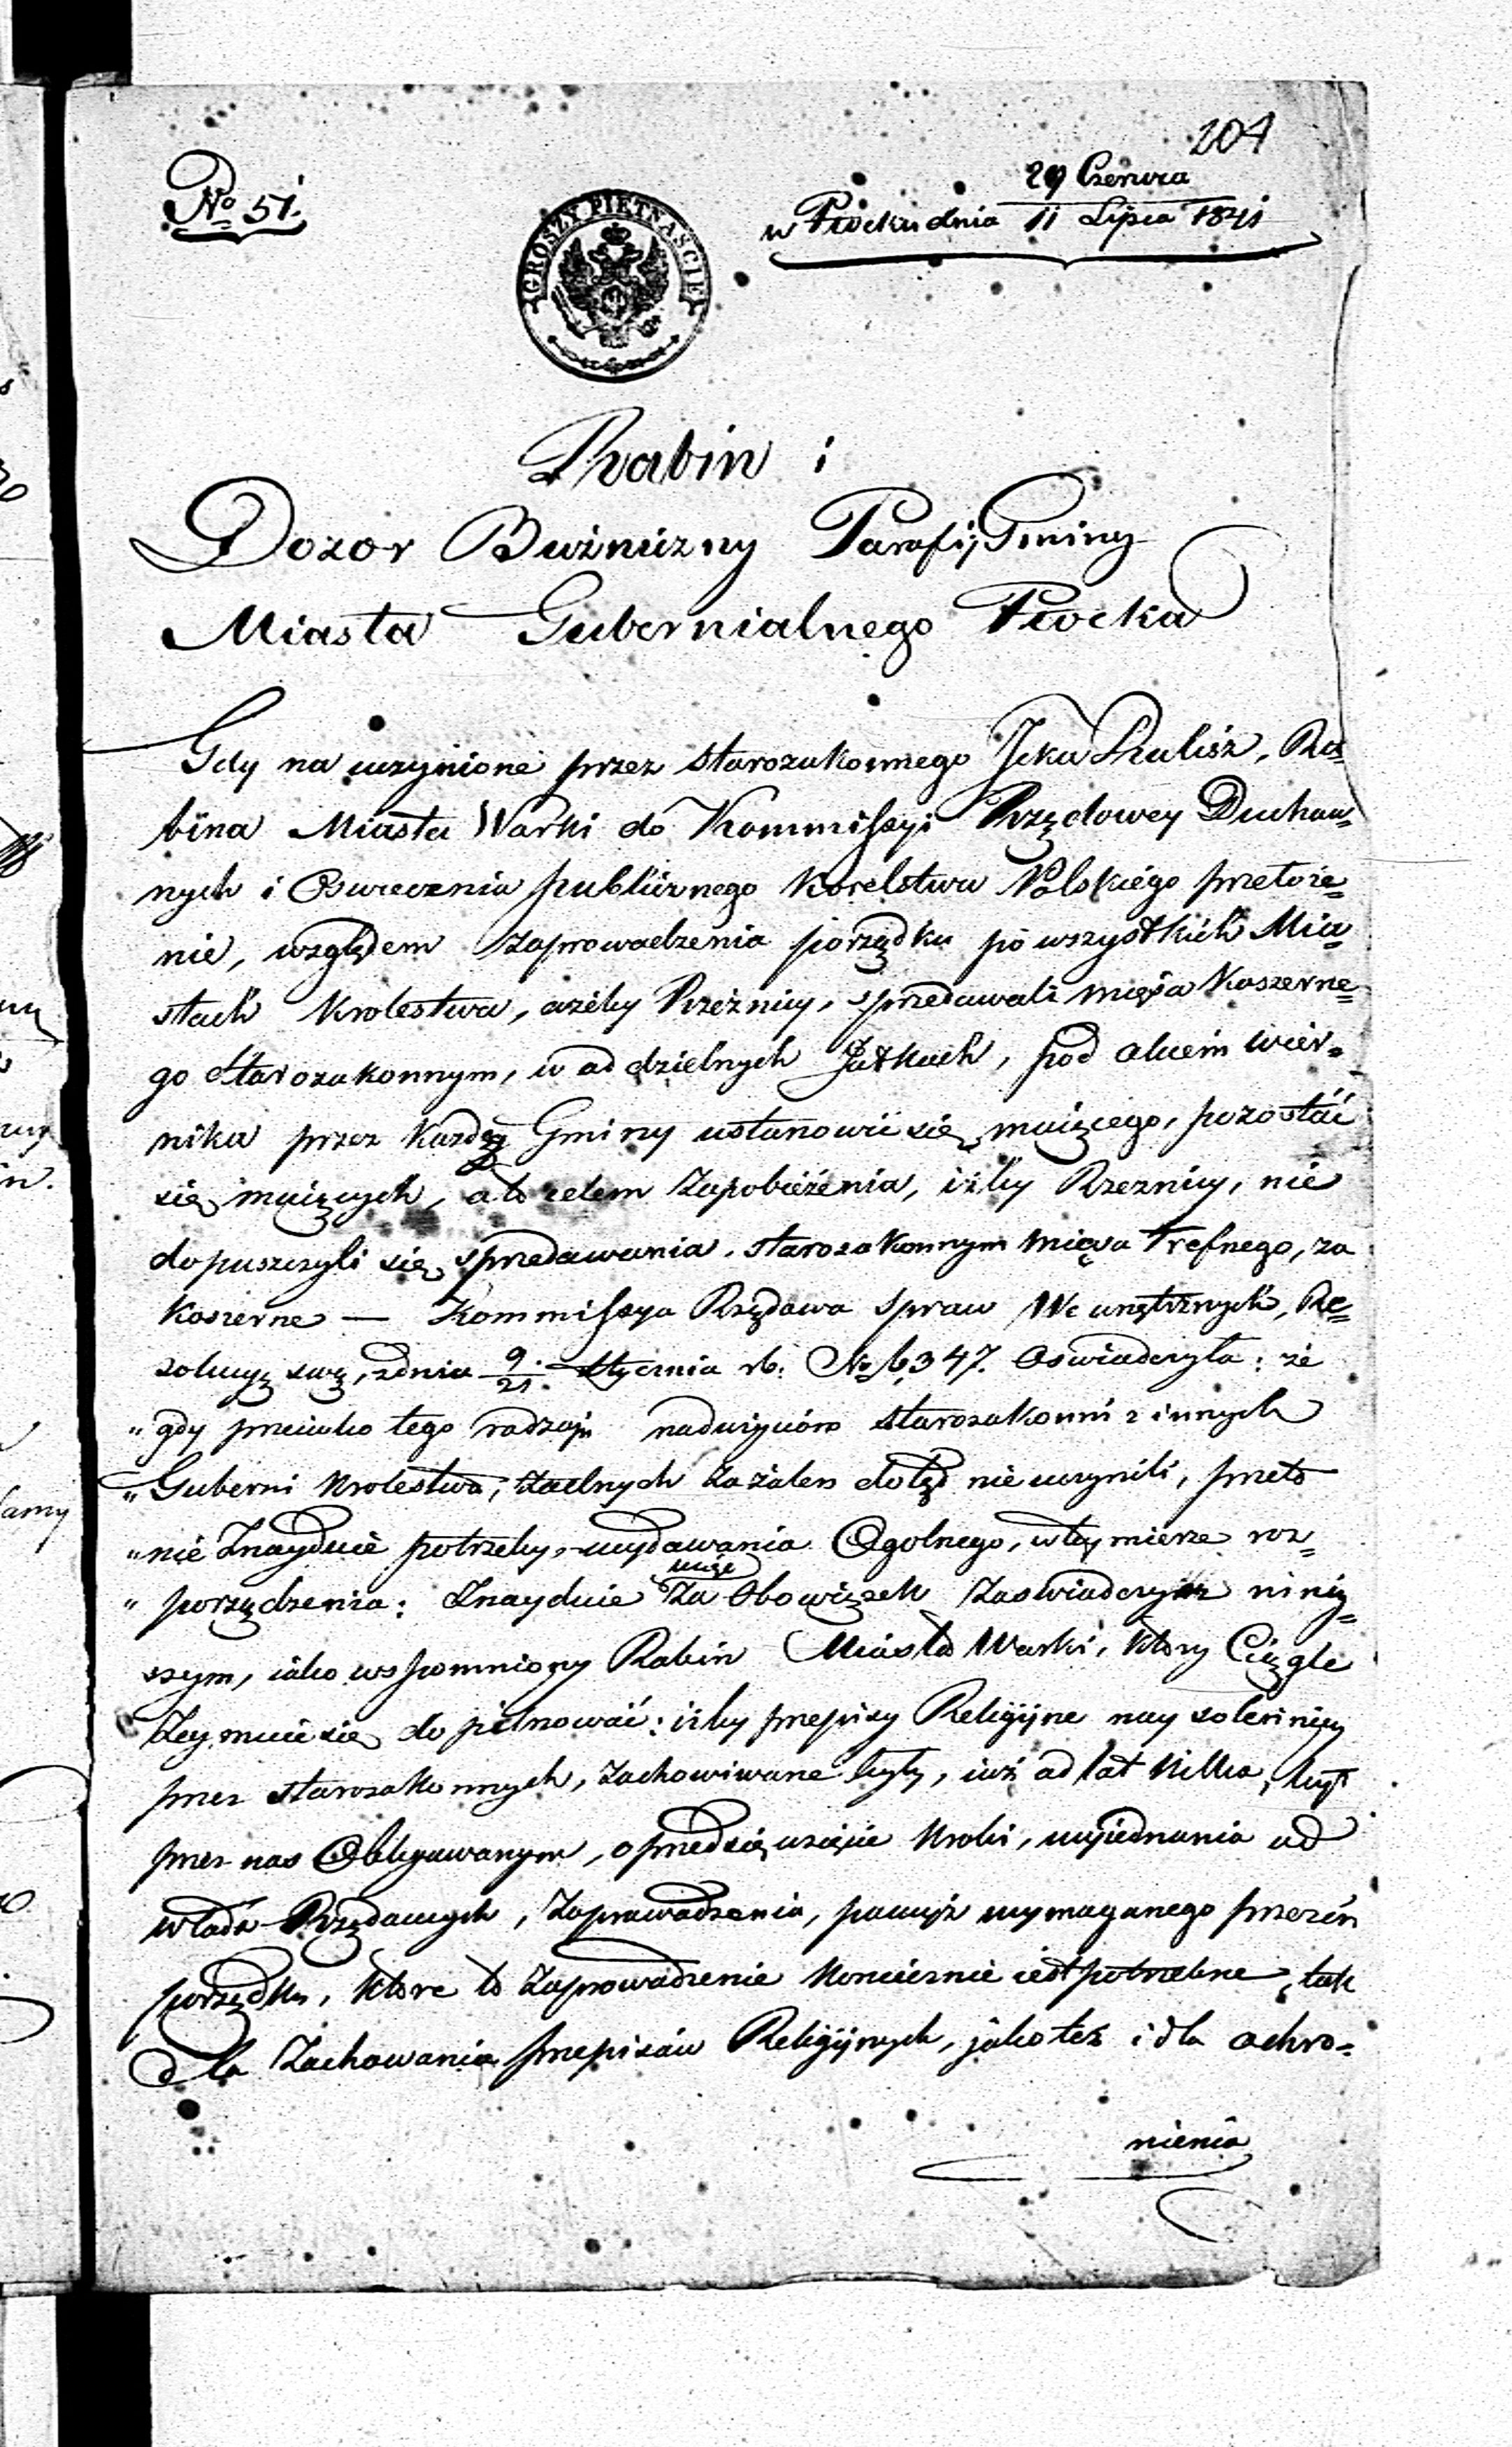 204
No 51.
29 Czerwca
w Płocku dnia 11 Lipca 1841
GROSZY PIĘTNAŚCIE
Rabin i
Dozor Bużniczny Parafij Gminy
Miasta Gubernialnego Płocka
Gdy na uczynione przez starozakonnego Icka Kalisz, Ra=
bina Miasta Warki do Kommissyi Rządowey Duchow=
nych i Oswiecenia publicznego Krolestwa Polskiego przełoże=
nie, względem zaprowadzenia porządku po wszystkich Mia=
stach Krolestwa, ażeby Rzeźnicy, sprzedawali mięsa Koszerne=
go starozakonnym, w oddzielnych Jatkach, pod okiem wier=
nika przez Każdę Gminy ustanowić się maiącego, pozostać
się maiących, a to celem zapobieżenia, iżby Rzeznicy, nie
dopuszczyli się sprzedawania starozakonnym mięsa trefnego, za
Koszerne — Kommissya Rządowa Spraw Wewnętrznych, Re=
zolucyą swą, z dnia 9/21 Stycznia rb. No 6,347. Oswiadczyła: że
„gdy przeciwko tego rodzaju nadużyciów starozakonni z innych
„Guberni Krolestwa, żadnych zażaleń dotąd nie uczynili, przeto
„nie Znayduie potrzeby, wydawania Ogolnego, w tey mierze roz=
„porządzenia: Znayduie za Obowiązek zaswiadczyć niniey=
szym, iako wspomniony Rabin Miasta Warki, ktory Ciągle
Zeymuie się do pilnować: iżby przepisy Religijne nay solenniey
przez starozakonnych, zachowiwane były, iuż od lat kilku, był
przez nas Obligowanym, o przedsięwzięcie kroki, wyjednania od
władz Rządowych, zaprowadzenia, powyż wymaganego przezeń
porządku, ktore to zaprowadzenie koniecznie iest potrzebne, tak
dla zachowania przepisów Religijnych, jako też i dla ochro=
nienia